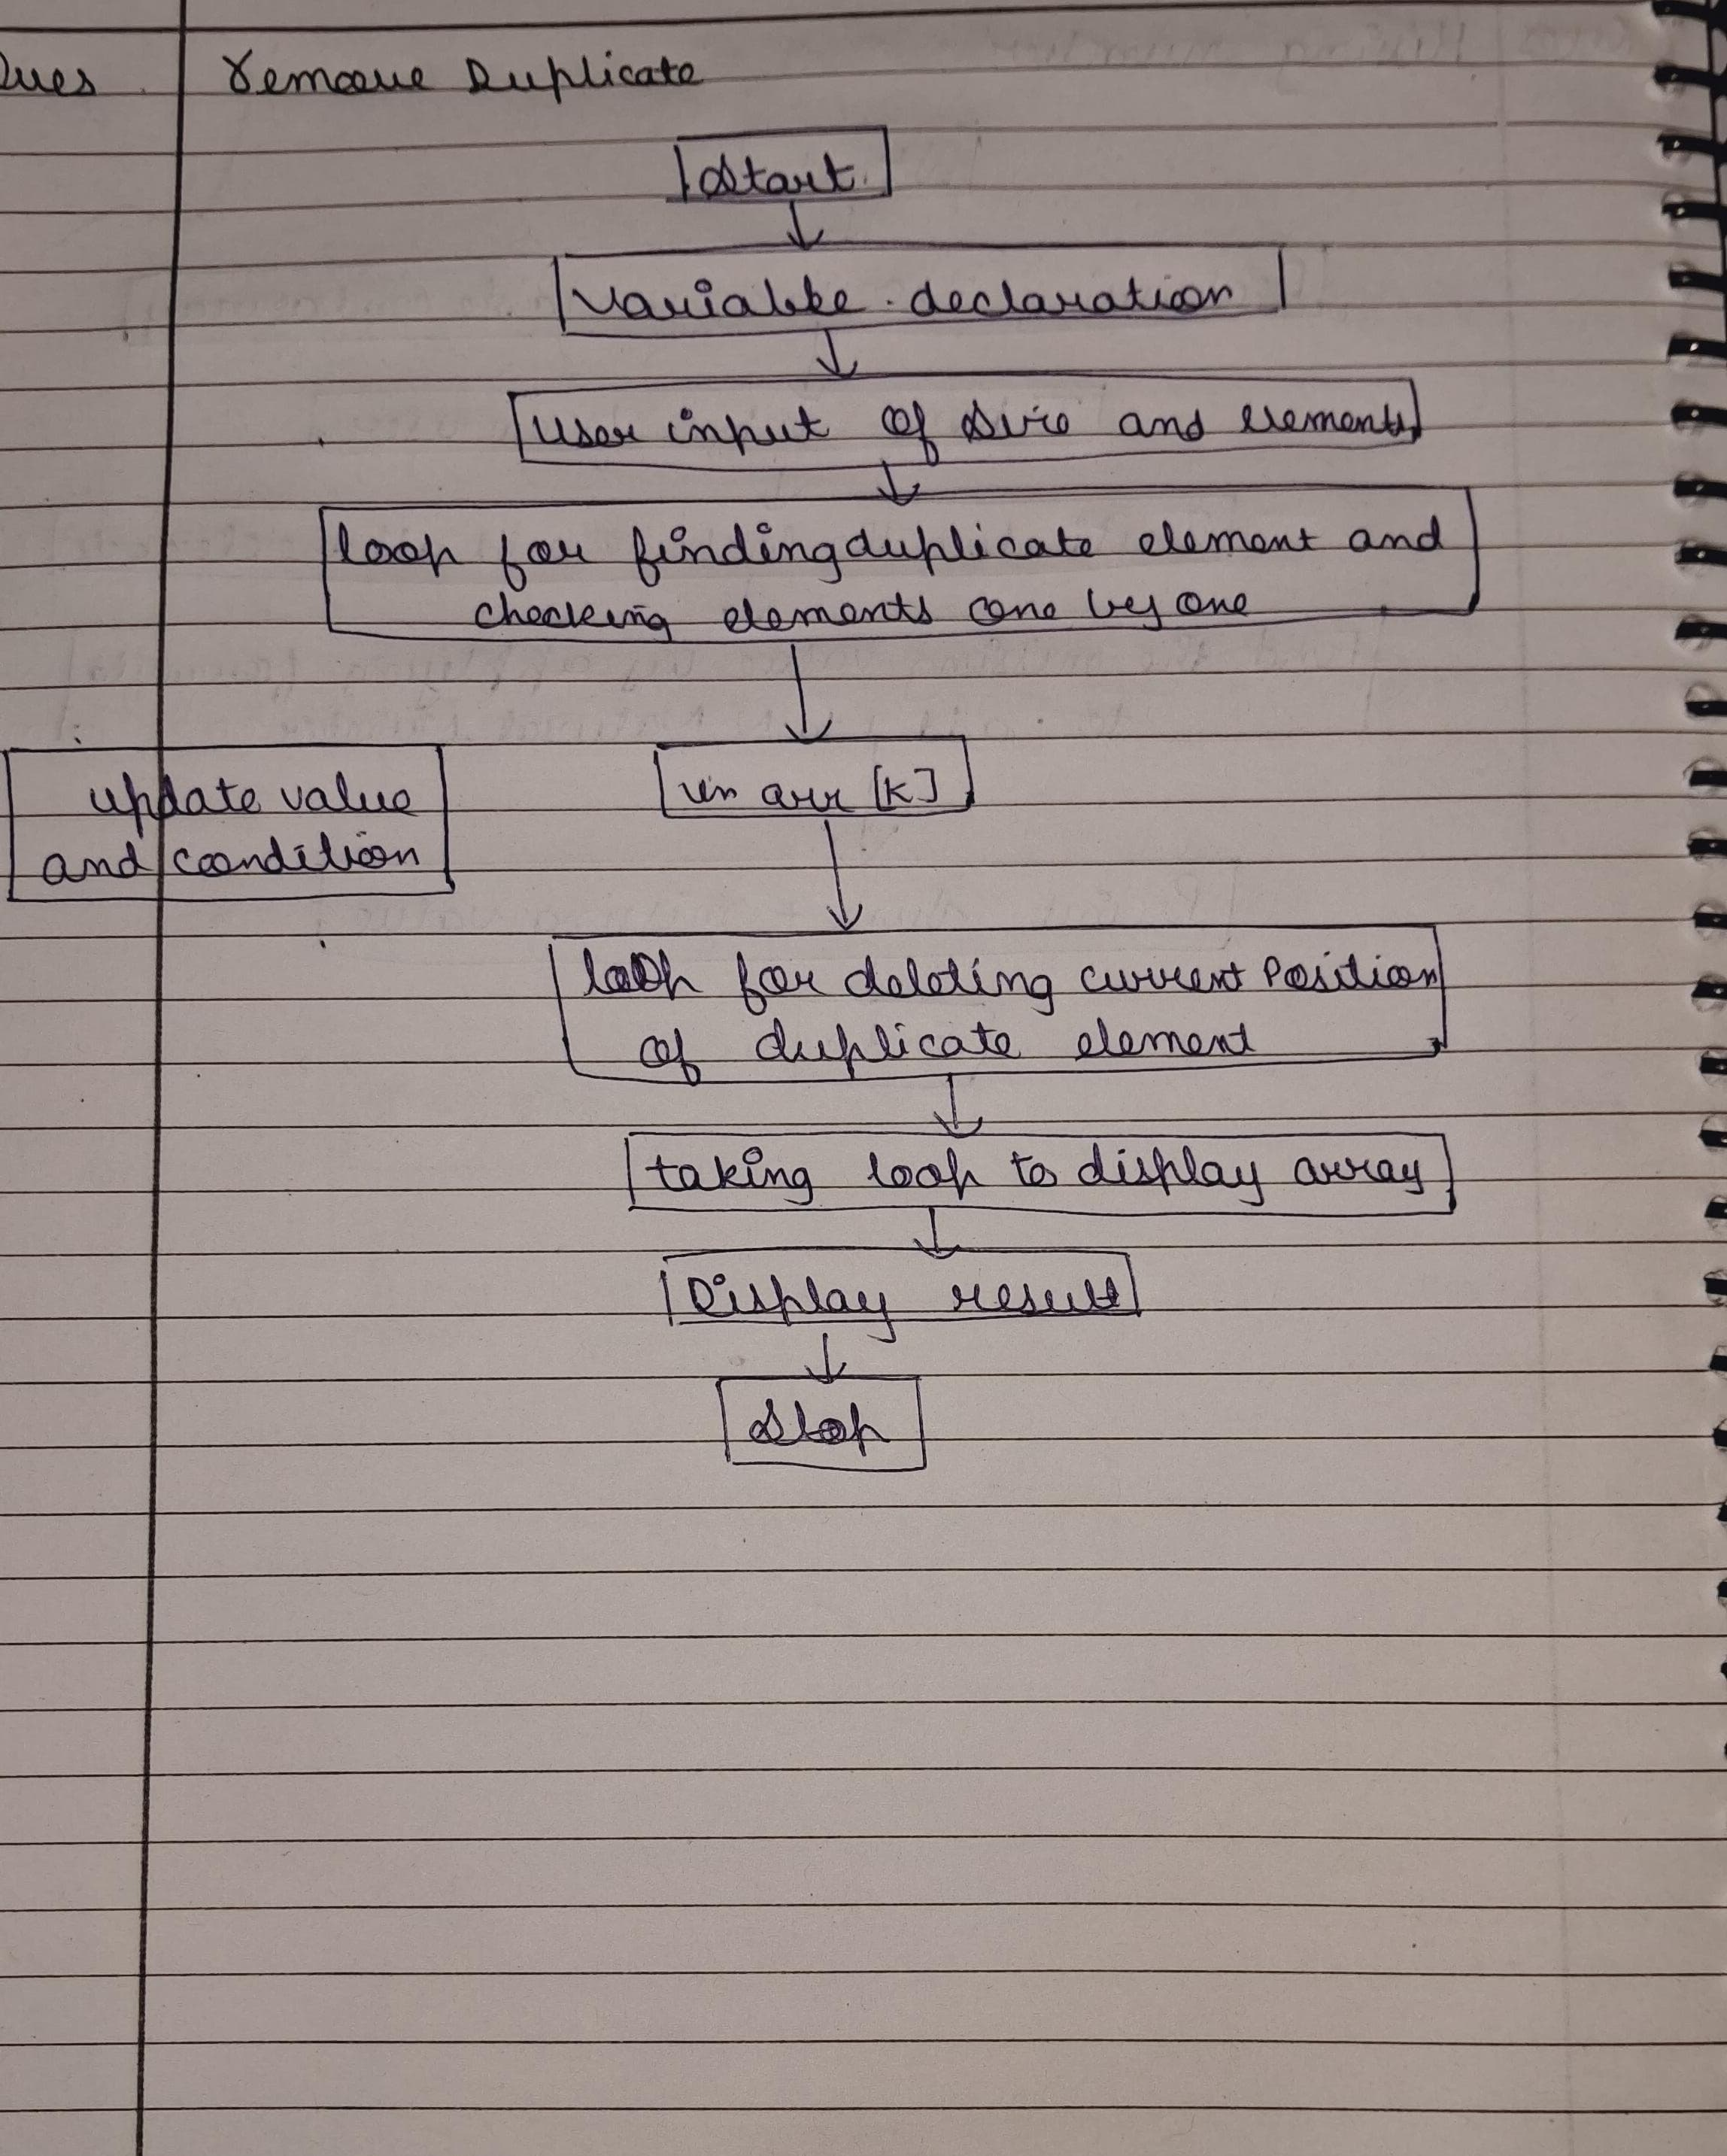 Ques remove Duplicate
Start
variable declaration
user input of size and elements
loop for finding duplicate element and
checking elements one by one
update value
and condition
in arr [K]
loop for deleting current Position
of duplicate element
taking loop to display array
Display result
Stop